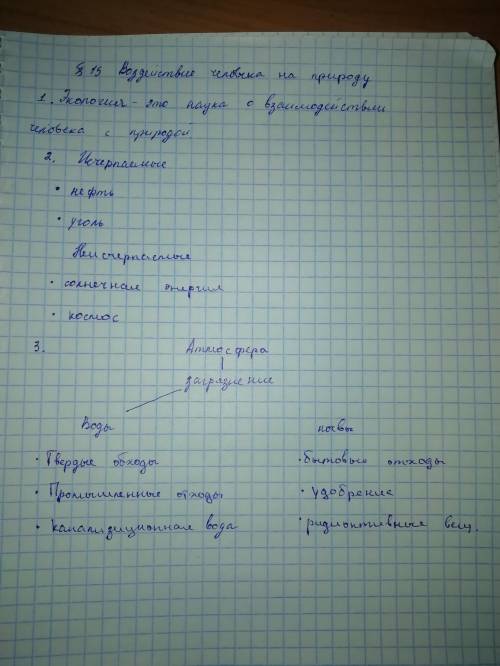 § 15 Воздействие человека на природу
1. Экология - это наука о взаимодействии
человека с природой
2. Исчерпаемые
• нефть
• уголь
Неисчерпаемые
• солнечная энергия
• космос
3. Атмосфера
загрязнение
Воды почвы
• Твердые обходы • бытовые отходы
• Промышленные отходы • удобрение
• канализиционная вода • радиоктивные вещ.